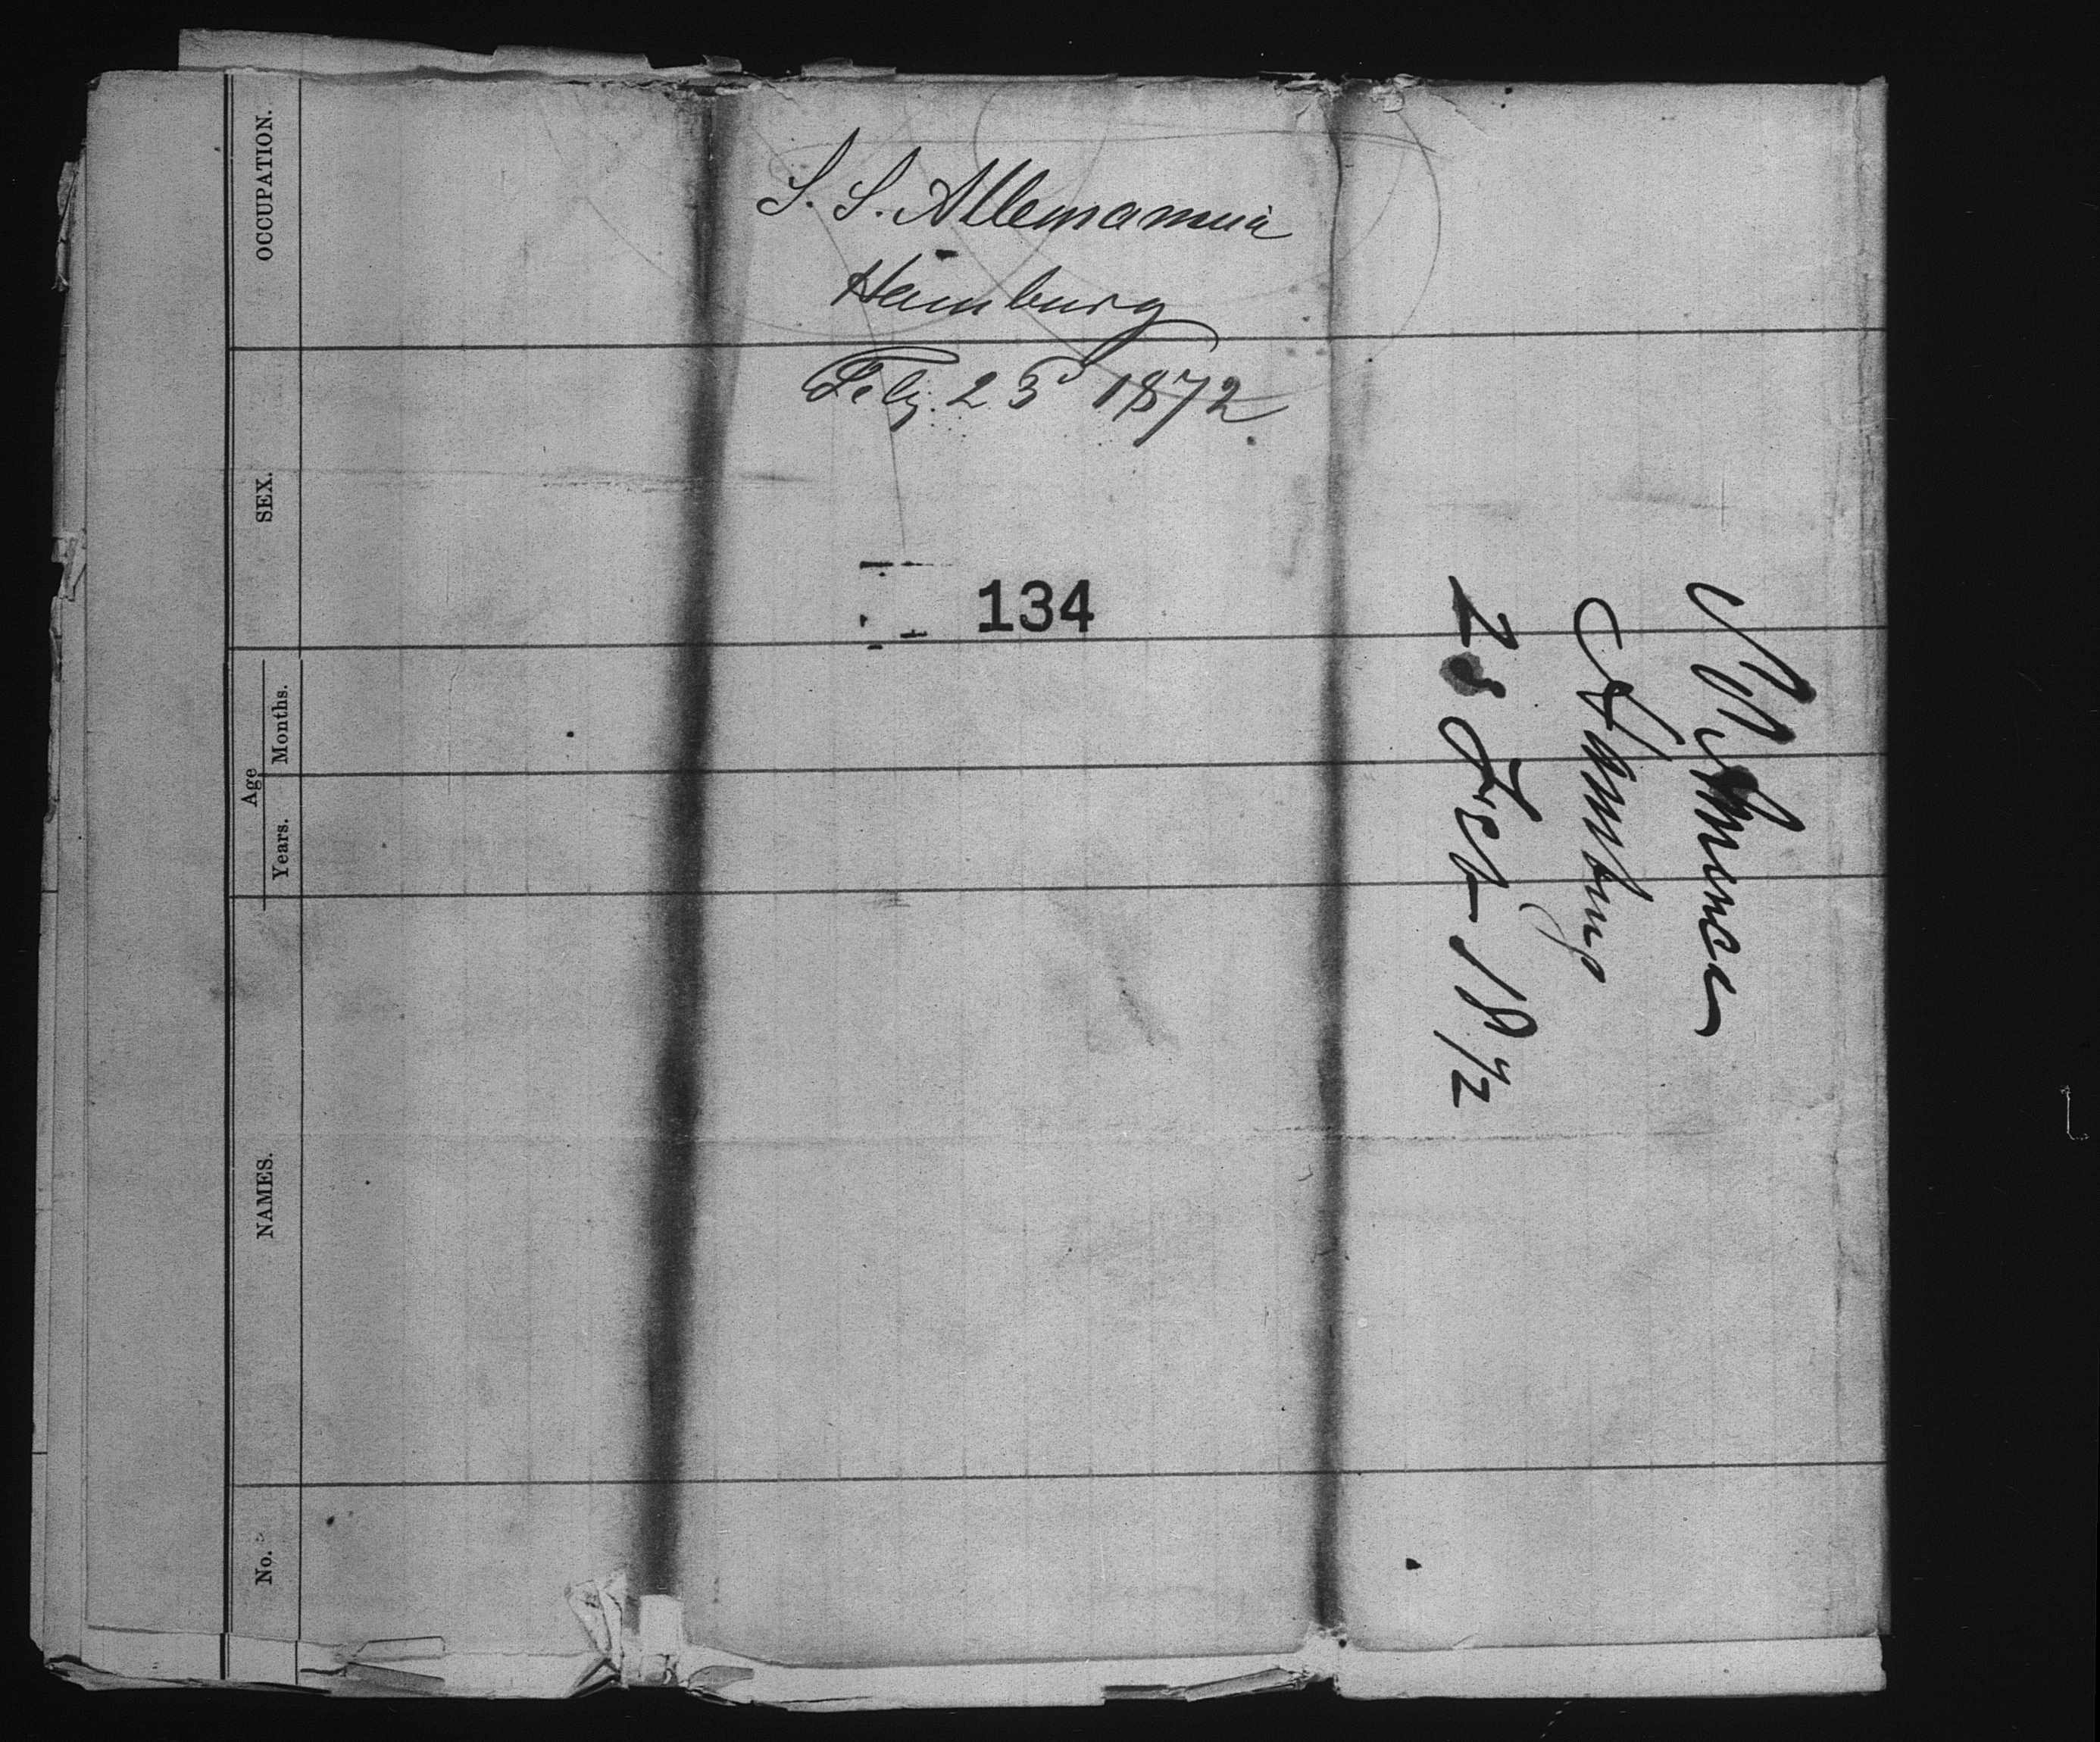 S. S. Allemannia
Hamburg
Feby. 23d 1872
134
Hamburg
Feb 1872
OCCUPATION.
SEX.
Age
Months.
Years.
NAMES.
No.